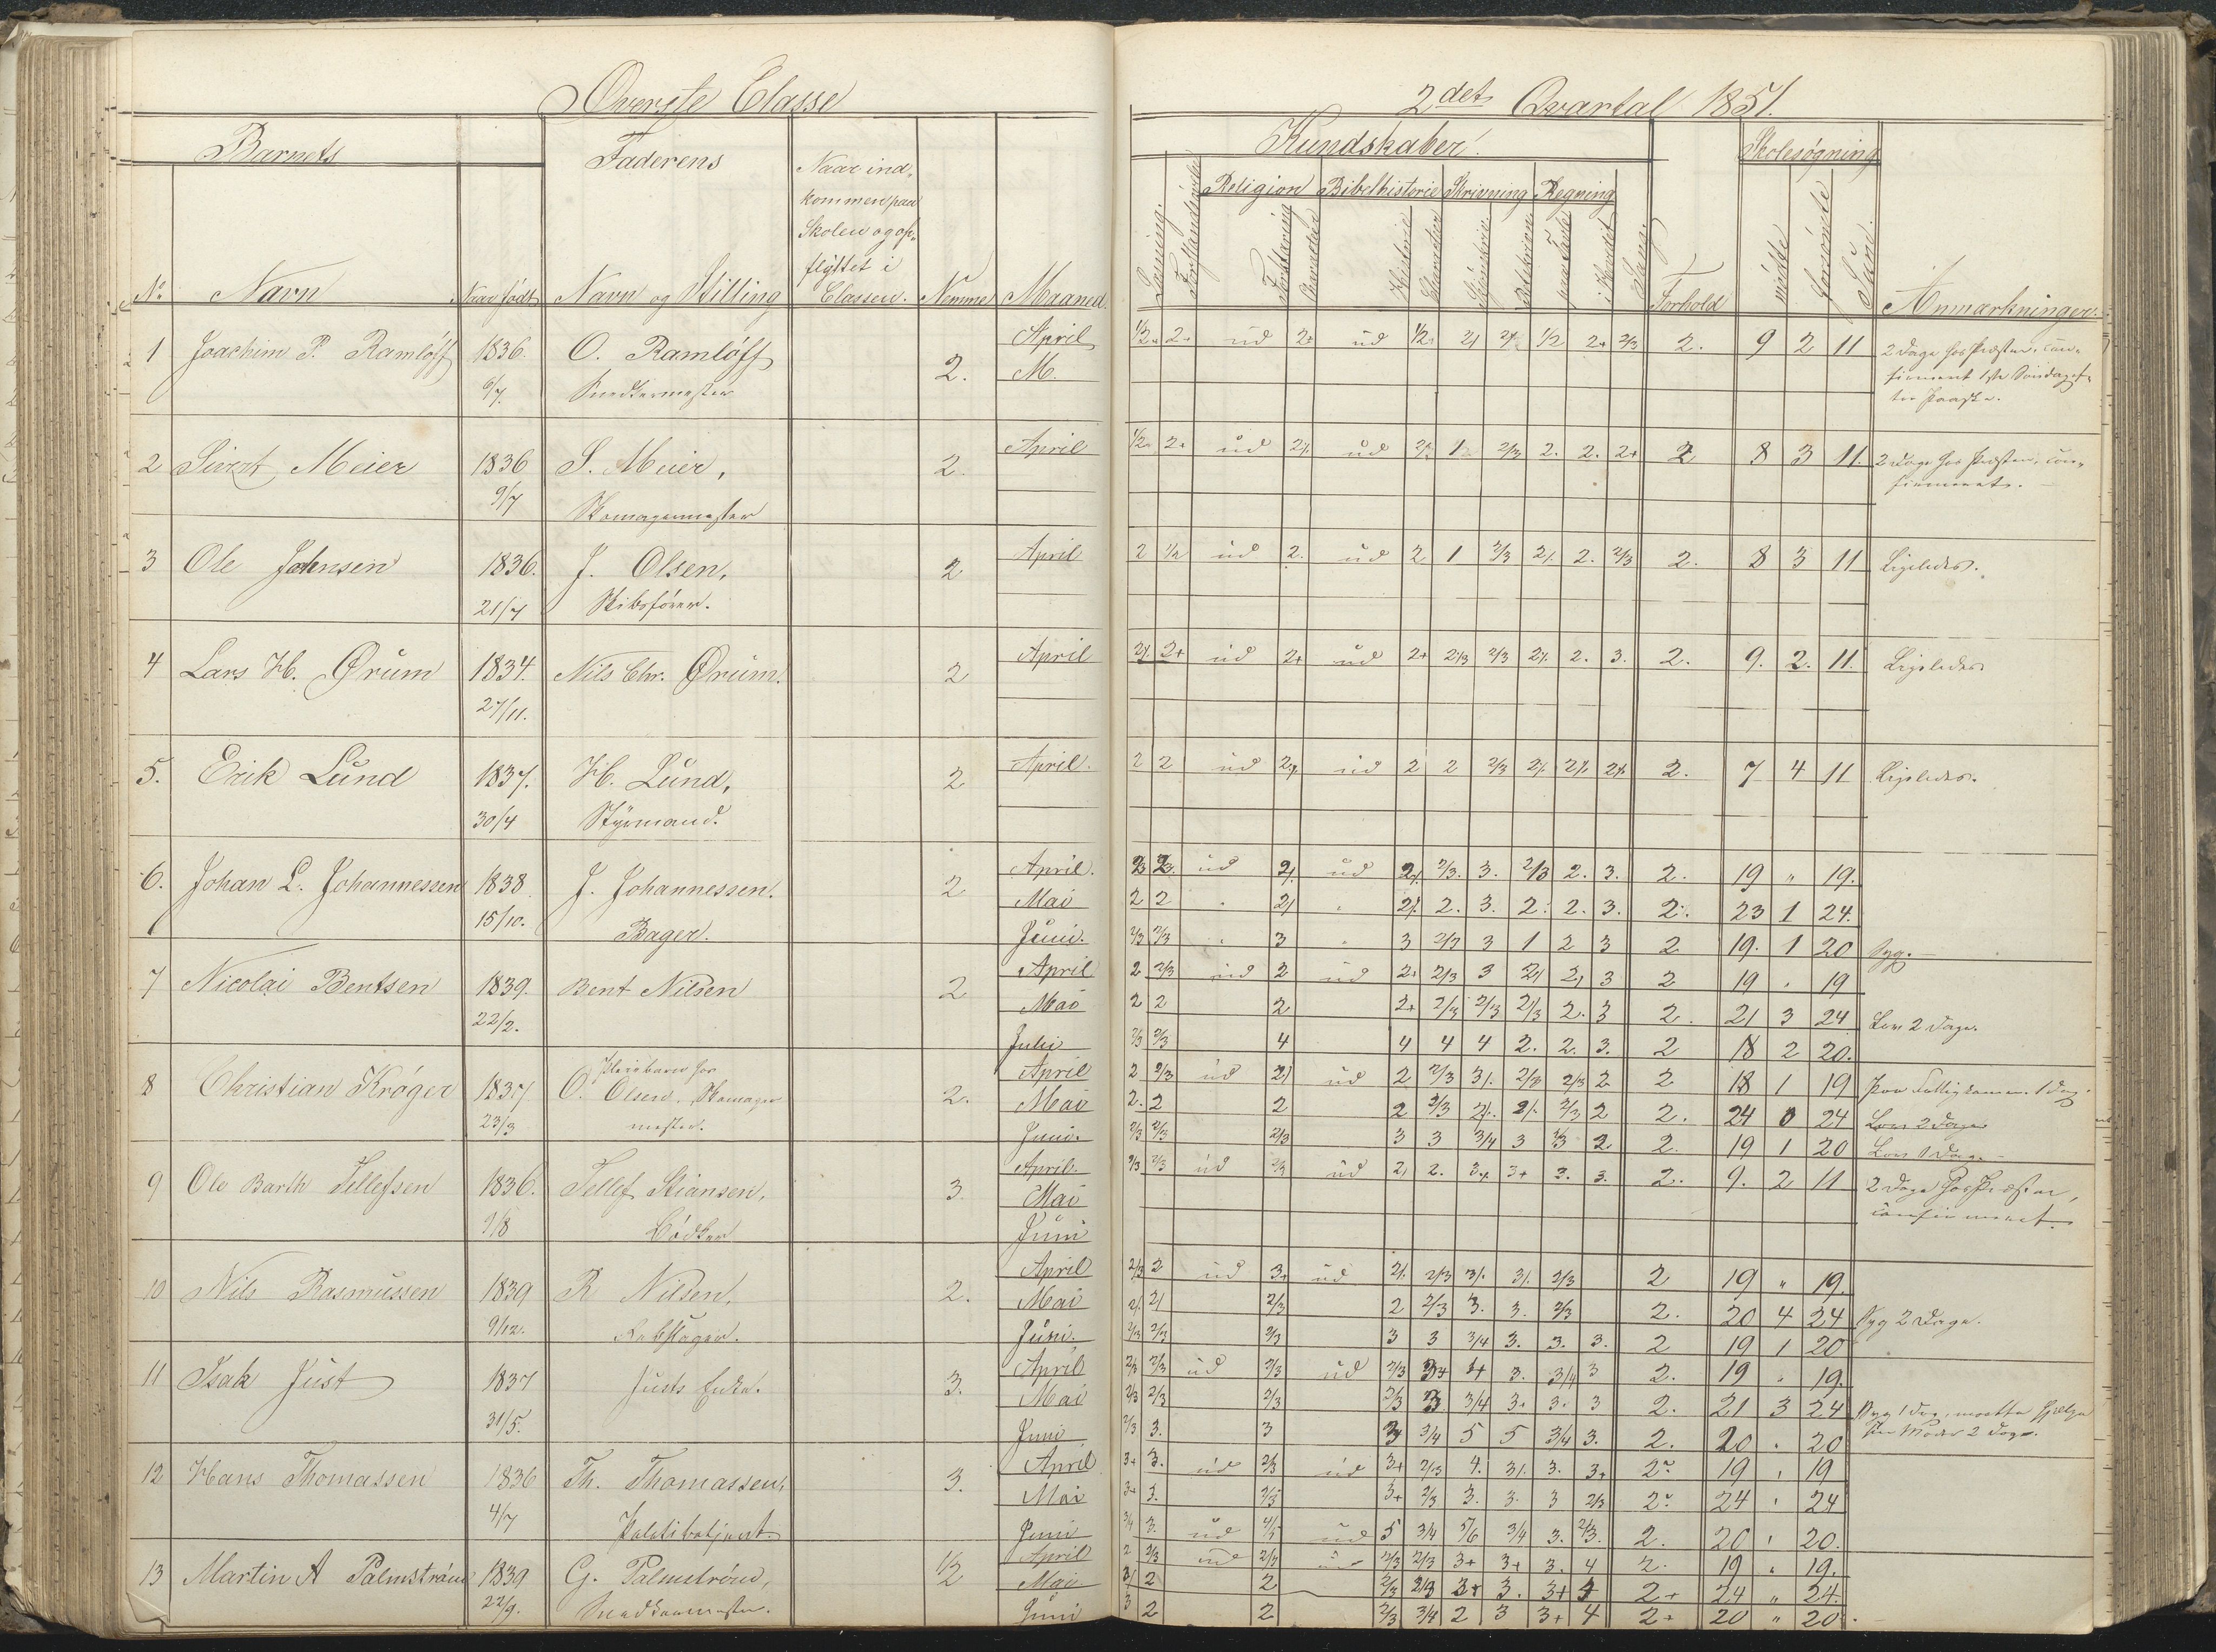 Øverste Classe
Barnets
Faderens
Naar ind-
kommen paa
Skolen og op-
flÿttet i
Classen.
No
Navn
Naar født
Navn og Stilling
Nemme
Maaned.
1 Joachim P. Ramløff 1836. O. Ramløff 2. April
6/7. Snedkermester M.
2 Sivert Meier 1836 S. Meier, 2. April
9/7 Skomagermester
3 Ole Johnsen 1836. J. Olsen, 2 April
21/7 Skibsfører.
4 Lars H. Ørum 1834. Nils Chr. Ørum. 2 April
27/11.
5. Erik Lund 1837. H. Lund, 2 April.
30/4 Stÿrmand.
6. Johan L. Johannessen 1838 J. Johannessen. 2 April.
15/10. Bager. Mai
Juni.
7 Nicolai Bentsen 1839. Bent Nilsen 2 April
22/2. Mai
Juli
8 Christian Krøger 1837 Pleiebarn hos 2. April
23/3 O. Olsen, Skomager Mai
mester. Juni.
9 Ole Barth Tellefsen 1836. Tellef Stiansen, 3. April.
9/8 Bødker Mai
Juni
10 Nils Rasmussen 1839 R Nilsen, 2. April
9/12. Rebslager. Mai
Juni.
11 Isak Just 1837 Justs Enke. 3. April
31/5. Mai
Juni
12 Hans Thomassen 1836 Th. Thomassen, 3. April
4/7 Politibetjent. Mai
Juni
13 Martin A Palmstrøm 1839 G. Palmstrøm, 1/2 April
22/9. Snedkermester. Mai
Juni
2det Qvartal 1851.
Kundskaber.
Skolesøgning
Religion Bibelhistorie Skrivning Regning
Læsning.
Forstandsøvelse
Forklaring
Historie
paa Tavle
i Hovedet
Sang.
Forhold
mødte
forsømte
Sum.
Anmærkninger.
1/2 2+ ud 2+ ud 1/2 2/ 2/. 1/2 2+ 2/3 2. 9 2 11 2 Dage hos Præsten, con-
firmeret 1ste Søndag ef-
ter Paaske.
1/2 2+ ud 2/. ud 2/. 1 2/3 2. 2. 2+ 2 8 3 11. 2 Dage hos Præsten, con-
firmeret.
2 1/2 ud 2. ud 2 1 2/3 2/. 2. 2/3 2. 8 3 11 Ligeledes.
2/. 2+ ud 2+ ud 2+ 2/3 2/3 2/. 2. 3. 2. 9. 2. 11. Ligeledes
2 2 ud 2/. ud 2 2 2/3 2/. 2/. 2/. 2. 7 4 11 Ligeledes.
2/3 2/3 ud 2/. ud 2/. 2/3. 3. 2/3 2. 3. 2. 19 " 19.
2 2 2/ 2/. 2. 3. 2. 2. 3. 2. 23 1 24.
2/3 2/3 3 3 2/3 3 1 2 3 2 19. 1 20 Syg.
2 2/3 ud 2 ud 2+ 2/3 3 2/ 2/ 3 2 19 . 19
2 2 2 2+ 2/3 2/3 2/3 2. 3 2. 21 3 24 Lov 2 Dage.
2/3 2/3 4 4 4 4 2. 2. 3. 2 18 2 20.
2 2/3 ud 2/ ud 2 2/3 3/. 2/3 2/3 2 2 18 1 19
2. 2 2 2 2/3 2/. 2/. 2/3 2 2. 24 0 24 Lov 2 Dage
2/3 2/3 2/3 3 3 3/4 3 2/3 2 2. 19 1 20 Lov 1 Dag.
2/3 2/3 ud 2/3 ud 2/ 2. 3+ 3+ 3. 3. 2. 9. 2 11 2 Dage hos Præsten,
confirmeret.
2/3 2 ud 3+ ud 2/. 2/3 3/. 3/. 2/3 2 19 " 19.
2/. 2/ 2/3 2 2/3 3. 3. 2/3 2. 20 4 24 Syg 2 Dage.
2/3 2/3 2/3 3 3 3/4 3. 3. 3. 2 19 1 20
2/3 2/3 ud 2/3 ud 2/3 3+ 4 3. 3/4 3 2. 19 . 19.
2/3 2/3 2/3 2/3 3 3/4 3+ 3. 3 2. 21 3 24 Syg 1 Dag, maatte hjælpe
sin Moder 2 Dage.
2/3 3. 3 3 3/4 5 5 3/4 3. 2. 20 . 20
3+ 3. ud 2/3 ud 3+ 2/3 4. 3/. 3. 3+ 2. 19 . 19
3+ 3. 2/3 3+ 2/3 3. 3. 3 2/3 2. 24 . 24
3/4 3. ud 4/5 ud 5 3/4 5/6 3/4 3. 2/3. 2. 20 . 20.
2 2/3 ud 2/3 ud 2/3 2/3 3+ 3+ 3. 4 2. 19 . 19.
2/ 2 2 2/3 2/3 3+ 3. 3+ 4 2+ 24 " 24.
3 2 2 2/3 3/4 2 3 3+ 4 2+ 20 " 20.